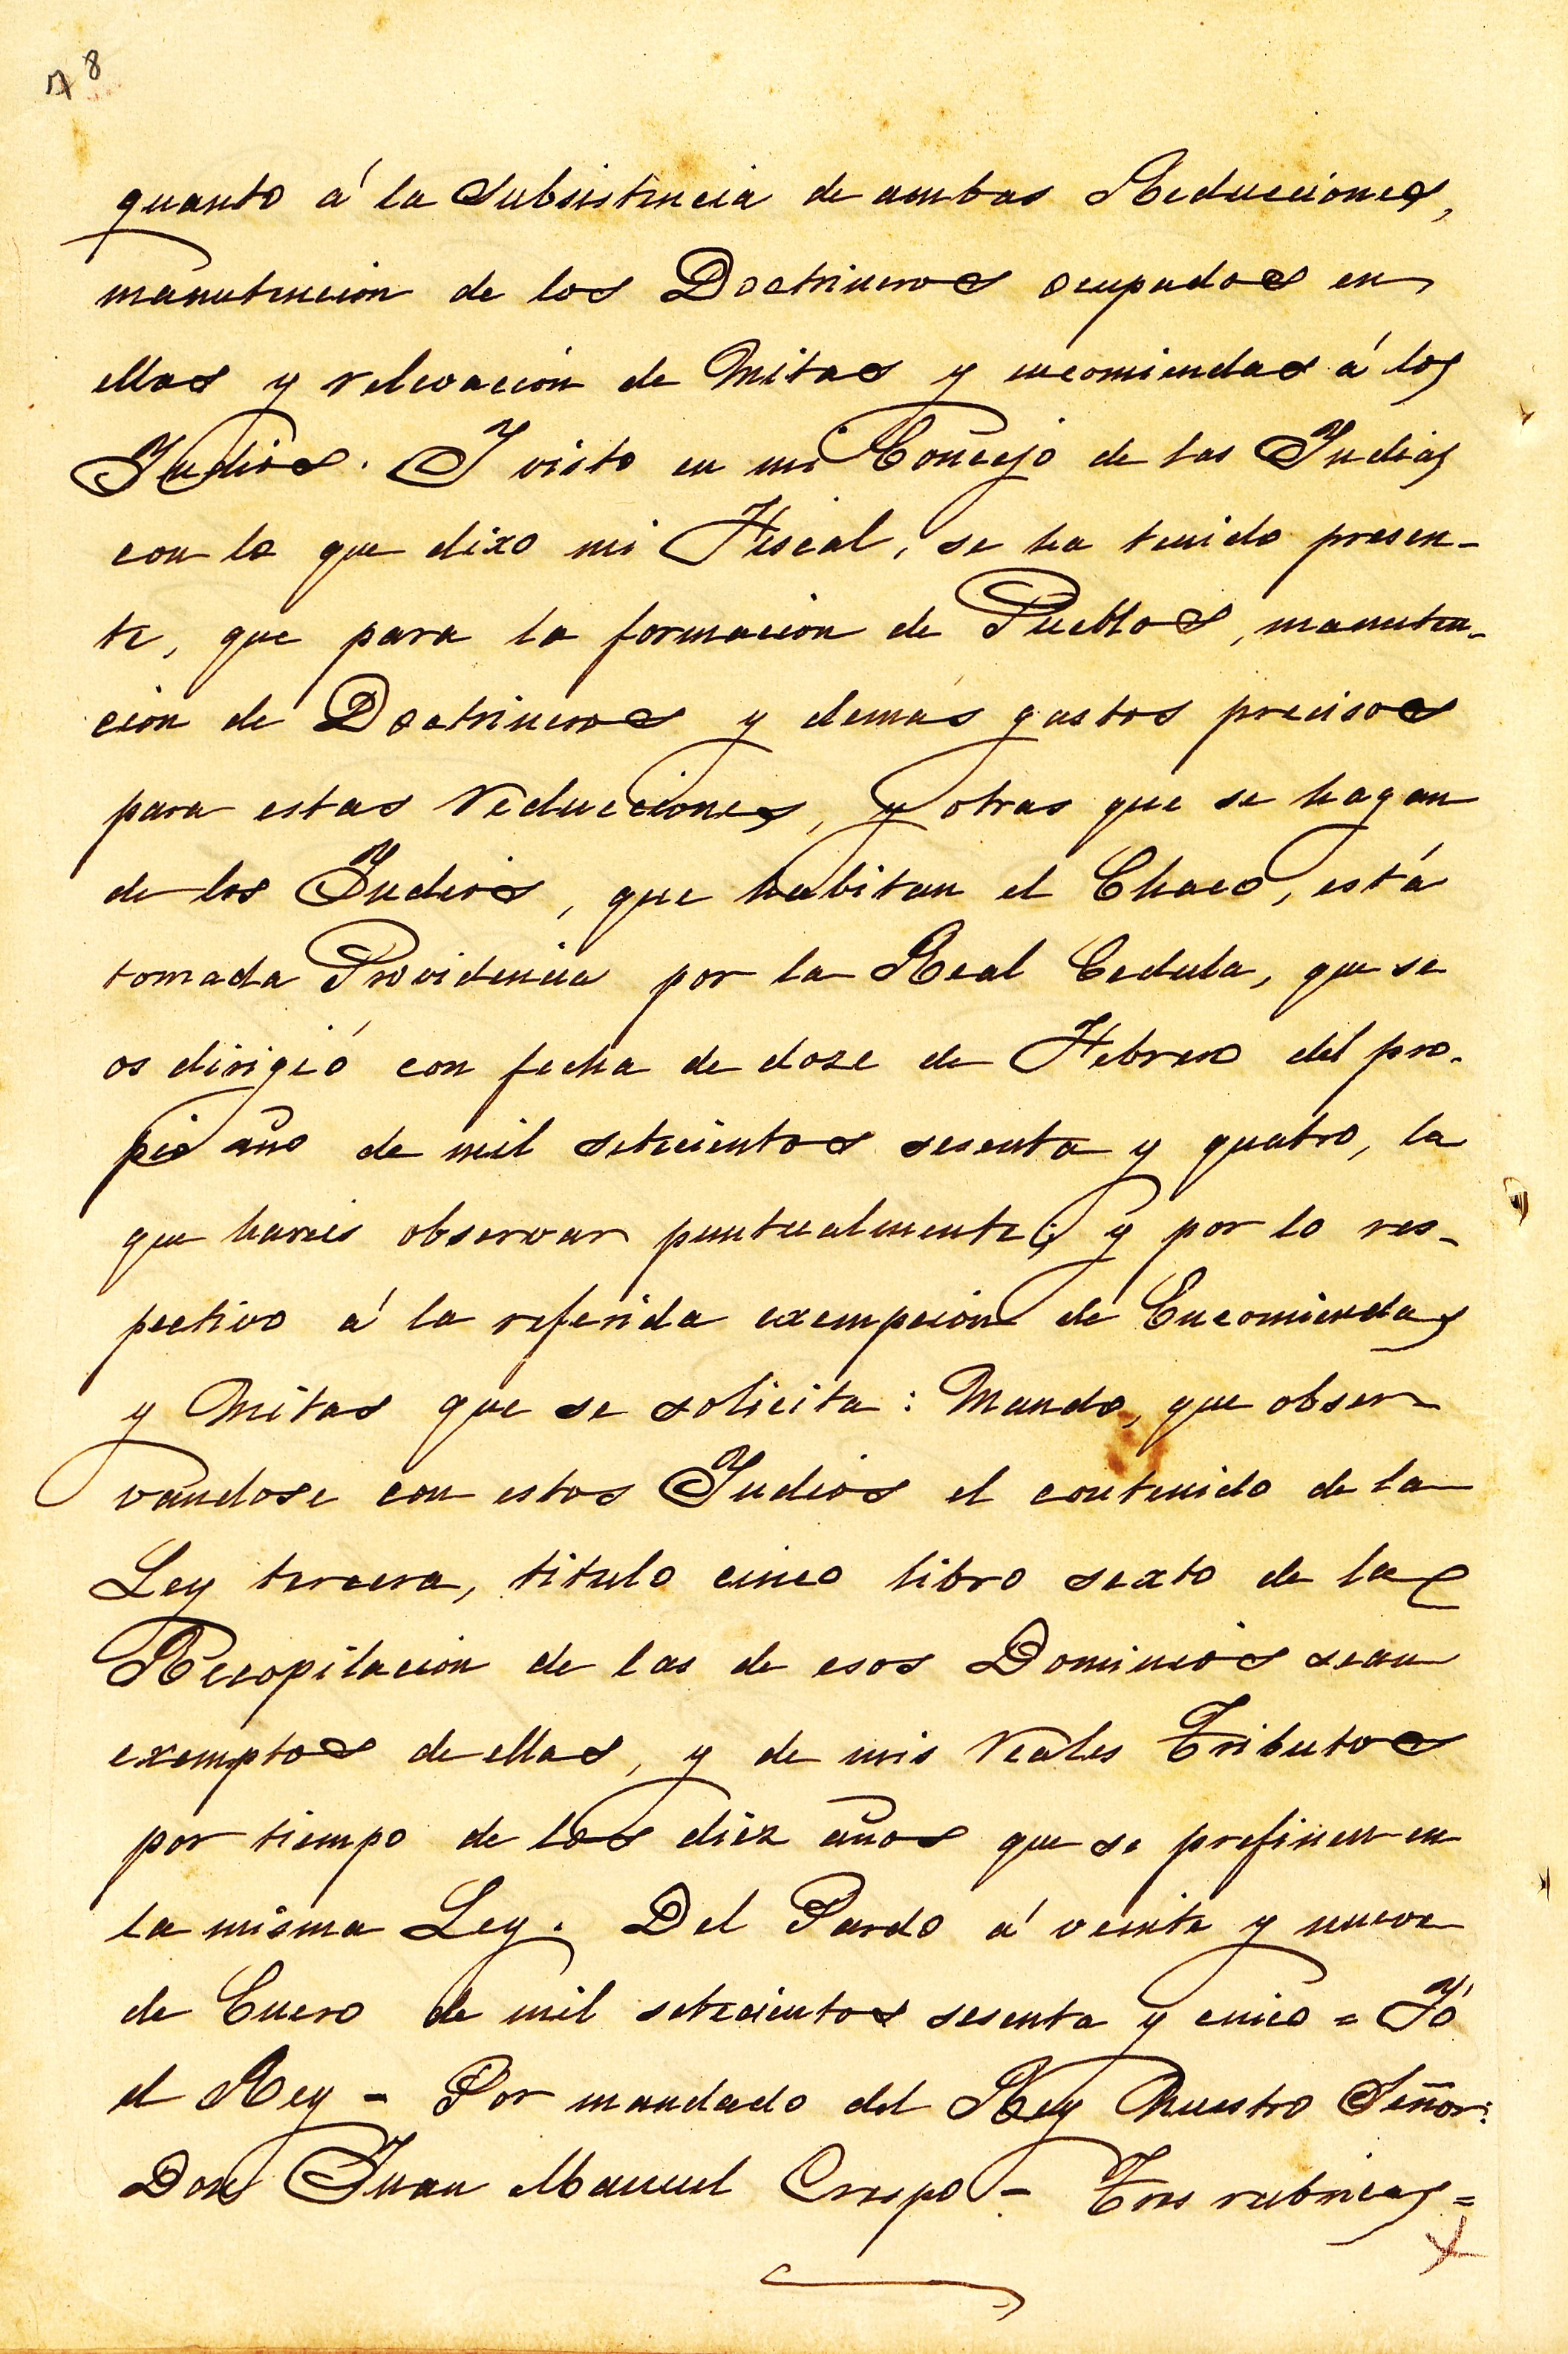 78
quanto á la Subsistencia de ambas Reducciones,
manutencion de los Doctrineros ocupados en
ellas y relevacion de Mitas y encomiendas á los
Indios. I visto en mi Concejo de las Indias
con lo que dixo mi Fiscal, se ha tenido presen-
te, que para la formacion de Pueblos, manuten-
cion de Doctrineros y demás gastos precisos
para estas reducciones, y otras que se hagan
de los Indios, que habitan el Chaco, está
tomada Providencia por la Real Cedula, que se
os dirigió con fecha de doze de Febrero del pro-
pio año de mil setecientos sesenta y quatro, la
que hareis observar puntualmente; y por lo res-
pectivo á la referida exempcion de Encomiendas
y Mitas que se solicita: Mando, que obser-
vandose con estos Indios el contenido de la
Ley tercera, titulo cinco libro sexto de la
Recopilacion de las de esos Dominios sean
exemptos de ellas, y de mis reales Tributos
por tiempo de los diez años que se prefinen en
la misma Ley. Del Pardo á veinte y nueve
de Enero de mil setecientos sesenta y cinco = Yó
el Rey - Por mandado del Rey Nuestro Señor:
Don Juan Manuel Crespo - Tres rubricas =